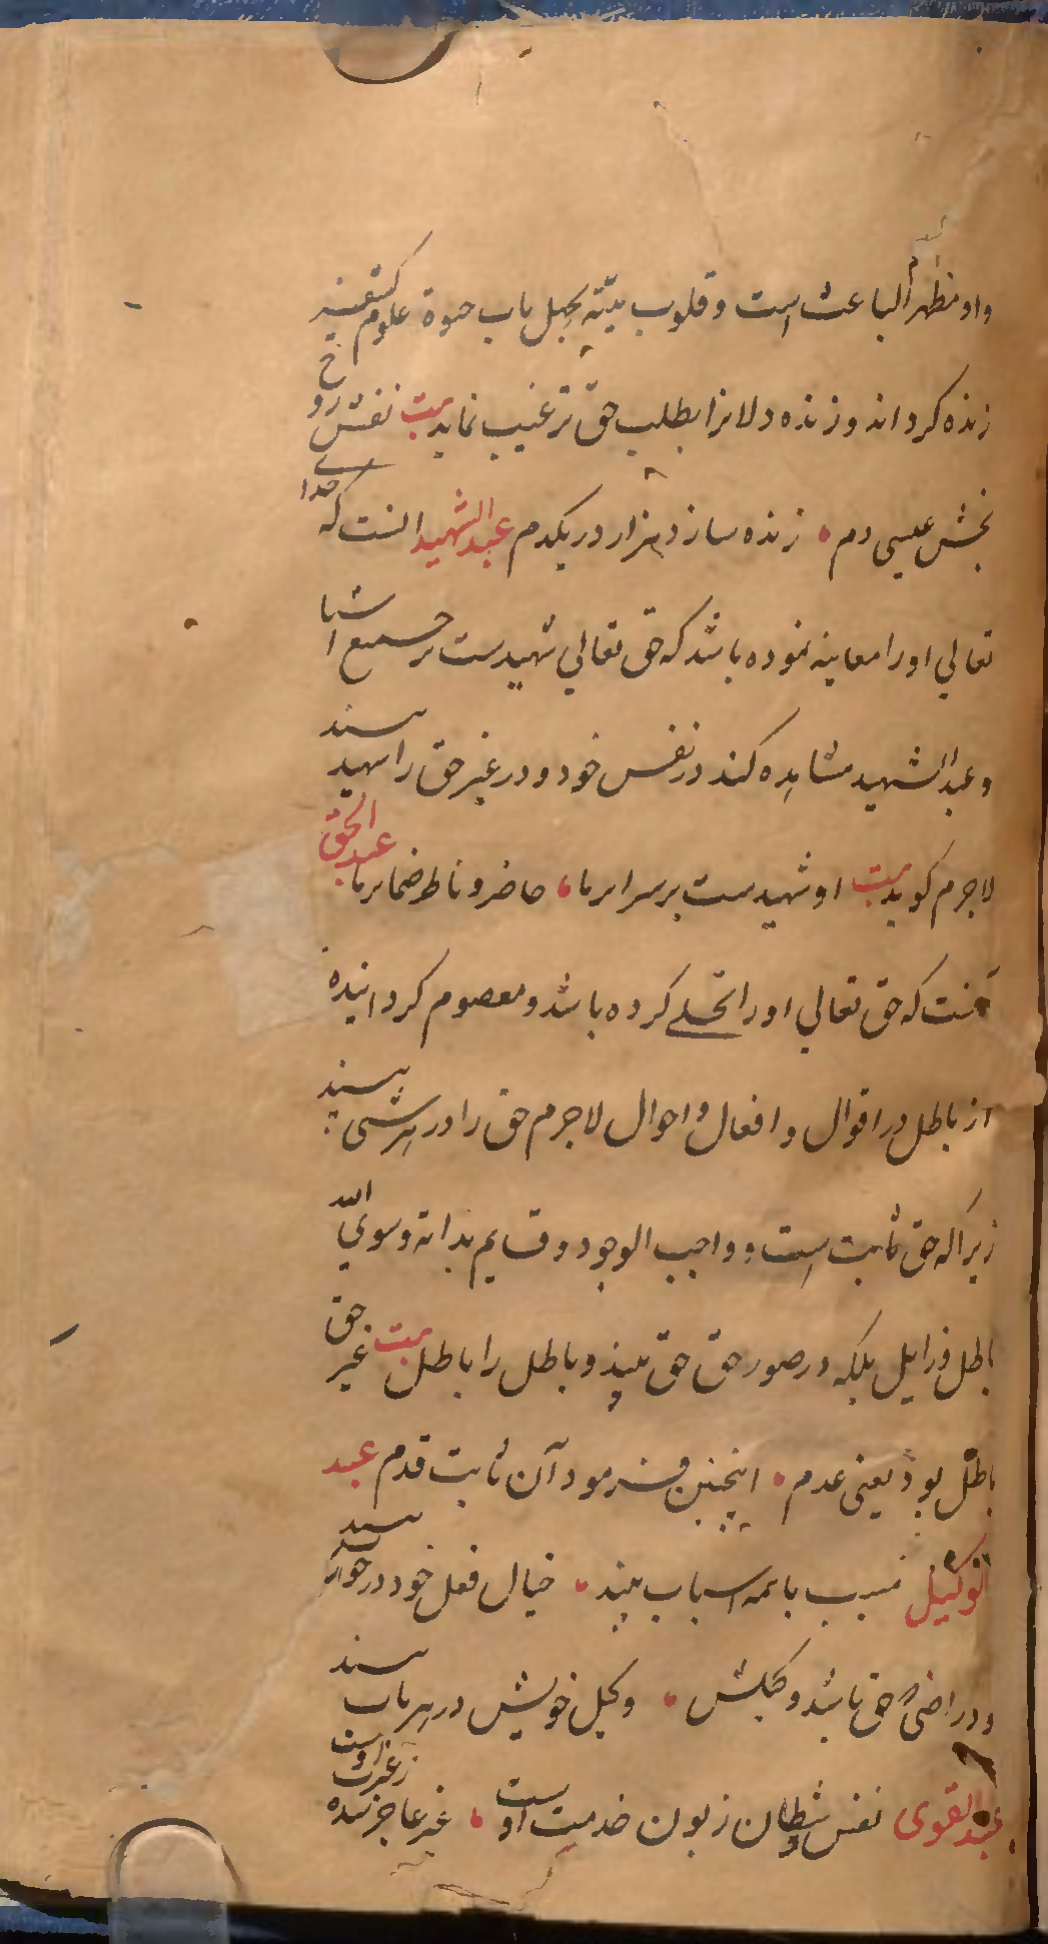 و او مظهر الباعث است و قلوب میته بجهل باب حیوة علوم یقینیه
زنده کرداند و زنده دلانرا بطلب حق ترغیب نماید بیت نفس روح
بخش عیسی دم زنده سازد هزار در یکدم عبد الشهید انست که خدا
تعالی او را معاینه نموده باشد که حق تعالی شهیدست بر جمیع اشیا
و عبد الشهید مشاهده کند در نفس خود و در غیر حق را شهید بیند
لاجرم کوید بیت او شهیدست بر سرایر ما حاضر و ناظر ضمایر ما عبد الحق
آنست که حق تعالی او را تجلی کرده باشد و معصوم کردانیده
از باطل در اقوال و افعال و احوال لاجرم حق را در هر شی بیند
زیرا که حق ثابت است و واجب الوجود و قایم بذاته و سوی الله
باطل و زایل بلکه در صور حق حق بیند و باطل را باطل بیت غیر حق
باطل بود یعنی عدم اینچنین فرمود آن ثابت قدم عبد
الوکیل مسبب با همه اسباب بیند خیال فعل خود در خواب بیند
و در راضی حق باشد وکیلش وکیل خویش در هر باب بیند
عبد القوی نفس و شیطان زبون خدمت اوست غیر عاجز شده